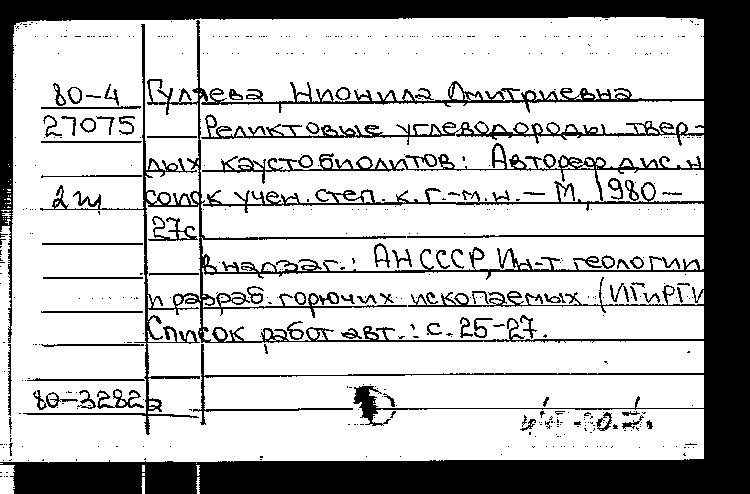 80-4 Гуляева, Нионила Дмитриевна
27075 Реликтовые углеводороды твер-
дых каустобиолитов: Автореф. дис. н
соиск учен. степ. к. г.-м. н. - М., 1980-
27с
В надзаг.: АН СССР, Ин-т геологии
и разраб. горючих ископаемых (ИГиРГИ
Список работ авт.: с. 25-27.
80-3282а